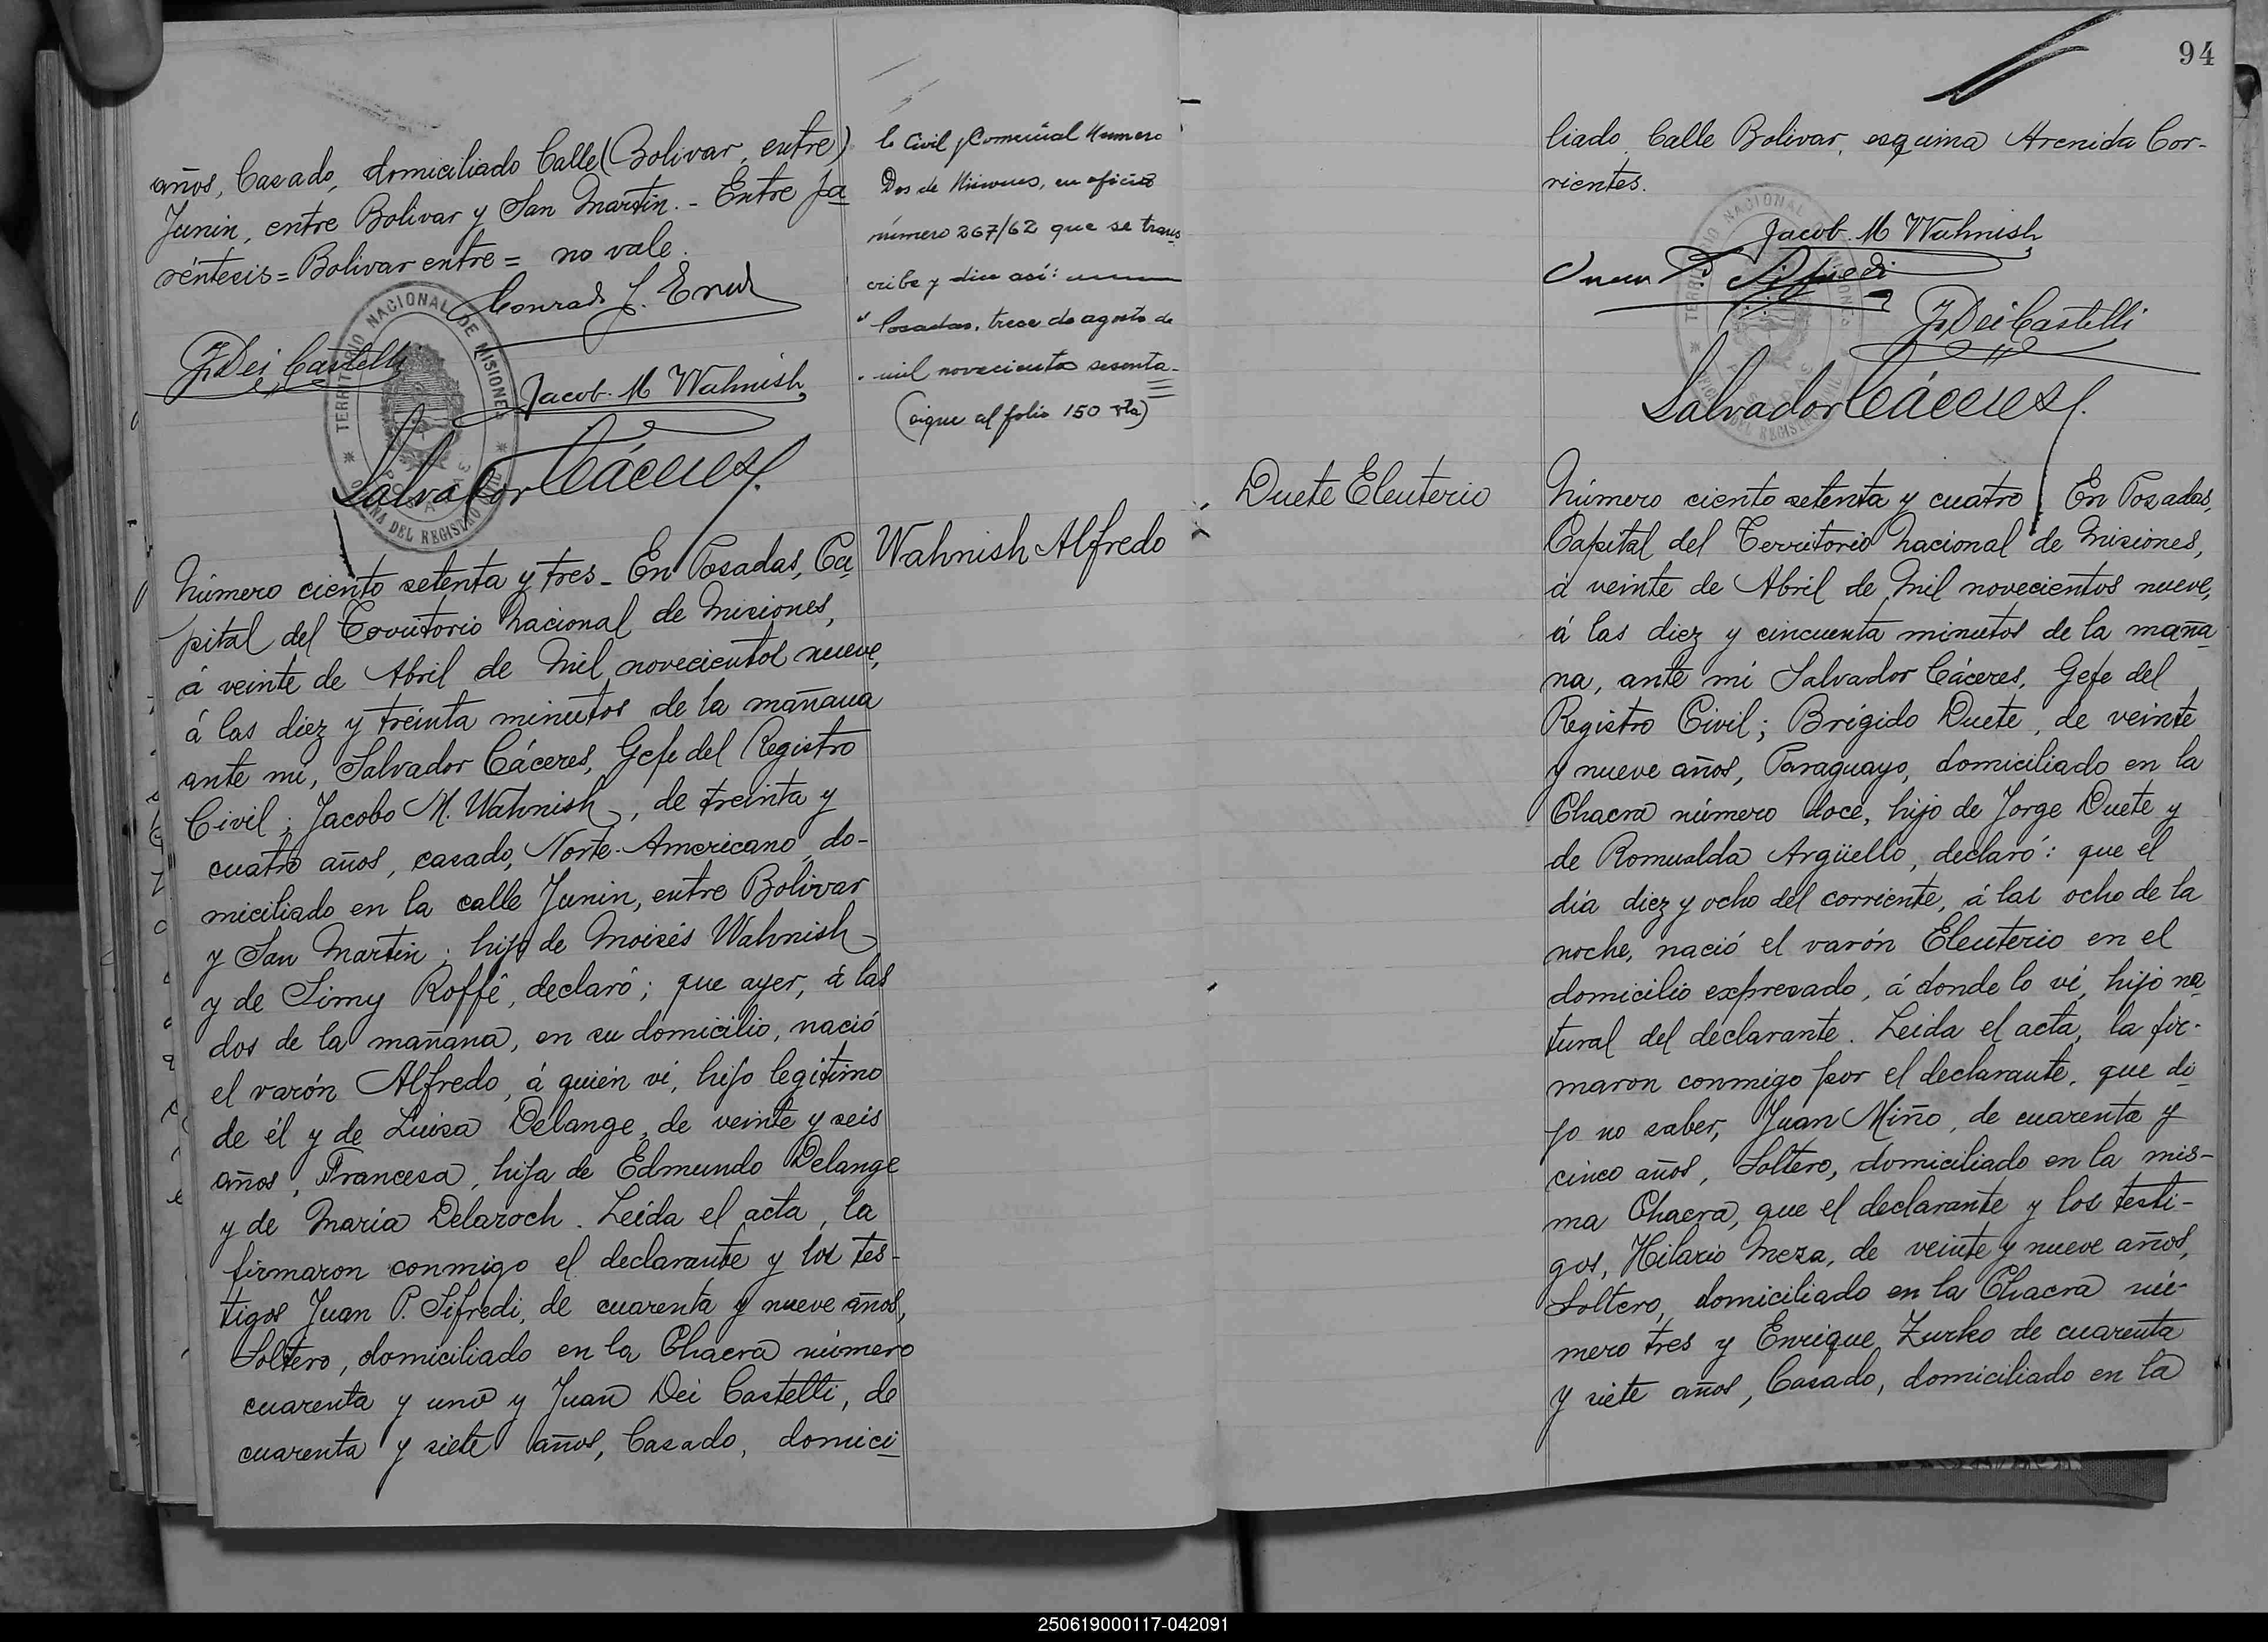 años, Casado, domiciliado Calle (Bolivar, entre)
Junin, entre Bolivar y San Martin. - Entre pa
réntecis = Bolivar entre = no vale.
J. Dei Castelli
Jacob. M Wahnish
Salvador Cáceres
TERRITORIO NACIONAL DE MISIONES
OFICINA DEL REGISTRO CIVIL
POSADAS
lo Civil y Comercial Numero
Dos de Misiones, en oficio
número 267/62 que se trans
cribe y dice así:
" Posadas, trece de agosto de
mil novecientos sesenta-
(sigue al folio 150 vta)
Wahnish Alfredo
Número ciento setenta y tres - En Posadas, Ca
pital del Territorio Nacional de Misiones,
á veinte de Abril de Mil novecientos nueve,
á las diez y treinta minutos de la mañana
ante mi, Salvador Cáceres, Gefe del Registro
Civil; Jacobo M. Wahnish, de treinta y
cuatro años, casado, Norte-Americano, do-
miciliado en la calle Junin, entre Bolivar
y San Martin; hijo de Moisés Wahnish
y de Simy Roffé, declaró; que ayer, á las
dos de la mañana, en su domicilio, nació
el varón Alfredo, á quién vi, hijo legítimo
de él y de Luisa Delange, de veinte y seis
años, Francesa, hija de Edmundo Delange
y de María Delaroch. Leída el acta, la
firmaron conmigo el declarante y los tes-
tigos Juan P. Sifredi, de cuarenta y nueve años,
Soltero, domiciliado en la Chacra número
cuarenta y uno y Juan Dei Castelli, de
cuarenta y siete años, Casado, domici
94
liado, Calle Bolivar, esquina Avenida Cor-
rientes.
Jacob. M Wahnish
Juan P. Sifredi
J. Dei Castelli
Salvador Cáceres
Duete Eleuterio
Número ciento setenta y cuatro En Posadas,
Capital del Territorio Nacional de Misiones,
á veinte de Abril de Mil novecientos nueve,
á las diez y cincuenta minutos de la maña
na, ante mi Salvador Cáceres, Gefe del
Registro Civil; Brígido Duete, de veinte
y nueve años, Paraguayo, domiciliado en la
Chacra número doce, hijo de Jorge Duete y
de Romualda Argüello, declaró: que el
día diez y ocho del corriente, á las ocho de la
noche, nació el varón Eleuterio en el
domicilio expresado, á donde lo ví, hijo na
tural del declarante. Leida el acta, la fir-
maron conmigo por el declarante, que di
jo no saber, Juan Miño, de cuarenta y
cinco años, Soltero, domiciliado en la mis-
ma Chacra, que el declarante y los testi-
gos, Hilario Meza, de veinte y nueve años,
Soltero, domiciliado en la Chacra nú-
mero tres y Enrique Zurko de cuarenta
y siete años, Casado, domiciliado en la
250619000117-042091